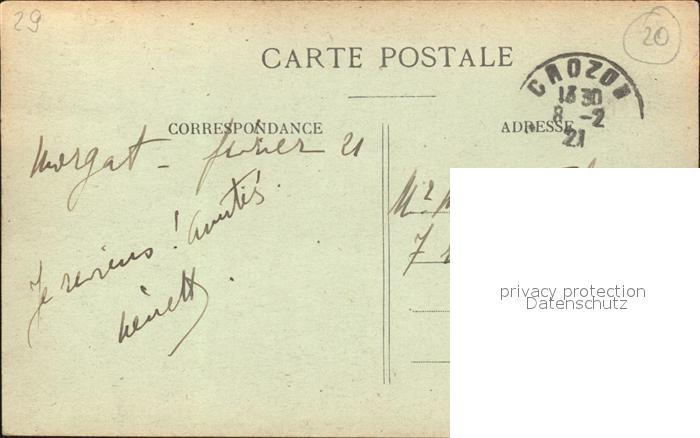 29
20
CARTE POSTALE
CROZON
13 30
8 -2
21
CORRESPONDANCE
ADRESSE
Morgat - février 21
Je reviens !
7
privacy protection
Datenschutz